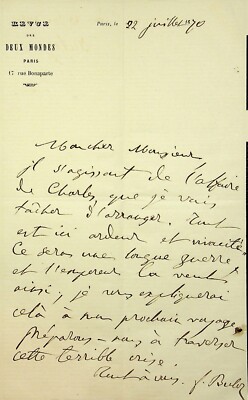 REVUE
DES
DEUX MONDES
PARIS
17 rue Bonaparte
Paris, le 22 juillet 1870
Mon cher Monsieur,
il s'agissait de l'affaire
de Charles, que je vais
tâcher d'arranger. Tout
est ici ardeur et vivacité
Ce sera une longue guerre
et l'empereur la veut
ainsi; je vous expliquerai
cela à mon prochain voyage
préparons-nous à traverser
cette terrible crise.
Tout à vous. f. Buloz